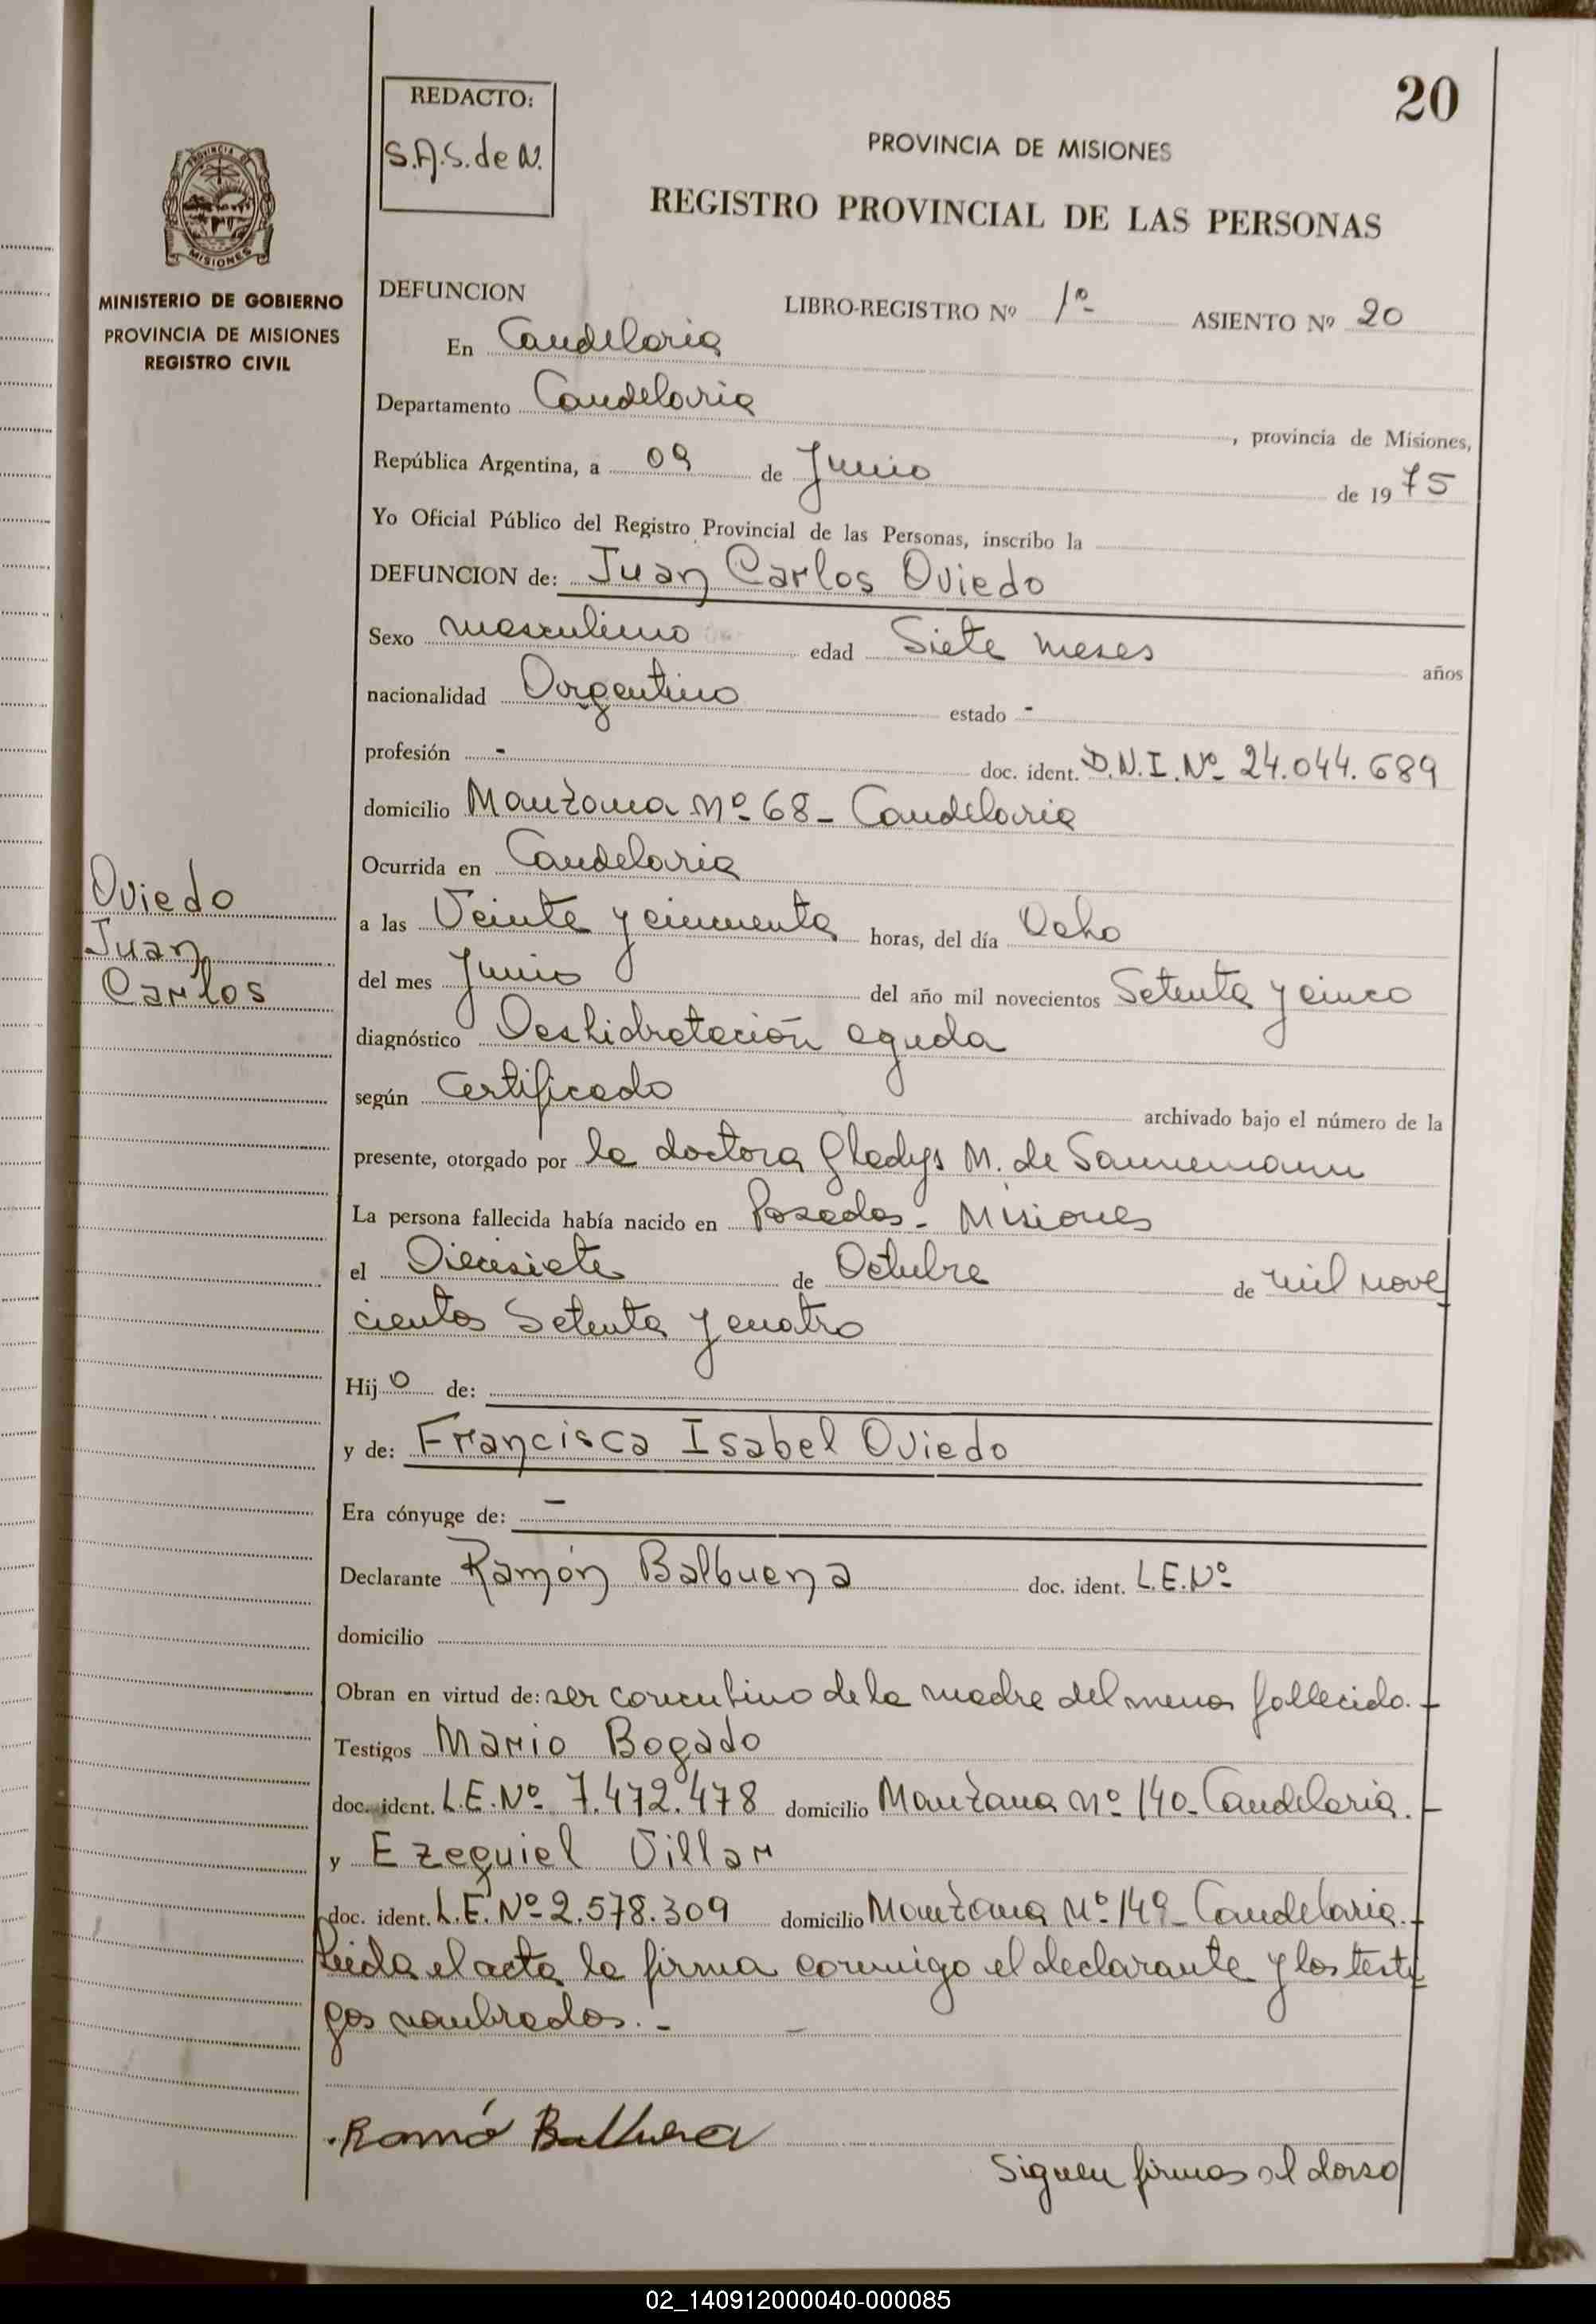 20
REDACTO:
S.A.S. de N.
PROVINCIA DE MISIONES
REGISTRO PROVINCIAL DE LAS PERSONAS
PROVINCIA DE
MISIONES
MINISTERIO DE GOBIERNO
PROVINCIA DE MISIONES
REGISTRO CIVIL
DEFUNCION
LIBRO-REGISTRO Nº 1º ASIENTO Nº 20
En Candelaria
Departamento Candelaria, provincia de Misiones,
República Argentina, a 09 de Junio de 1975
Yo Oficial Público del Registro Provincial de las Personas, inscribo la
DEFUNCION de: Juan Carlos Oviedo
Sexo masculino edad Siete meses años
nacionalidad Argentino estado -
profesión - doc. ident. D.N.I. Nº 24.044.689
domicilio Manzana Nº 68 - Candelaria
Ocurrida en Candelaria
Oviedo
Juan
Carlos
a las Veinte y cincuenta horas, del día Ocho
del mes Junio del año mil novecientos Setenta y cinco
diagnóstico Deshidratación aguda
según Certificado archivado bajo el número de la
presente, otorgado por la doctora Gladys M. de Sannemann
La persona fallecida había nacido en Posadas - Misiones
el Diecisiete de Octubre de mil nove
cientos Setenta y cuatro
Hijo de:
y de: Francisca Isabel Oviedo
Era cónyuge de: -
Declarante Ramón Balbuena doc. ident. L.E. Nº
domicilio
Obran en virtud de: ser concubino de la madre del menor fallecido. -
Testigos Mario Bogado
doc. ident. L.E. Nº 7.472.478 domicilio Manzana nº 140 - Candelaria. -
y Ezequiel Villar
doc. ident. L.E. Nº 2.578.309 domicilio Manzana Nº 149 - Candelaria. -
Leida el acta la firma conmigo el declarante y los testi
gos nombrados. -
Ramó Balbuena
Siguen firmas al dorso
02_140912000040-000085